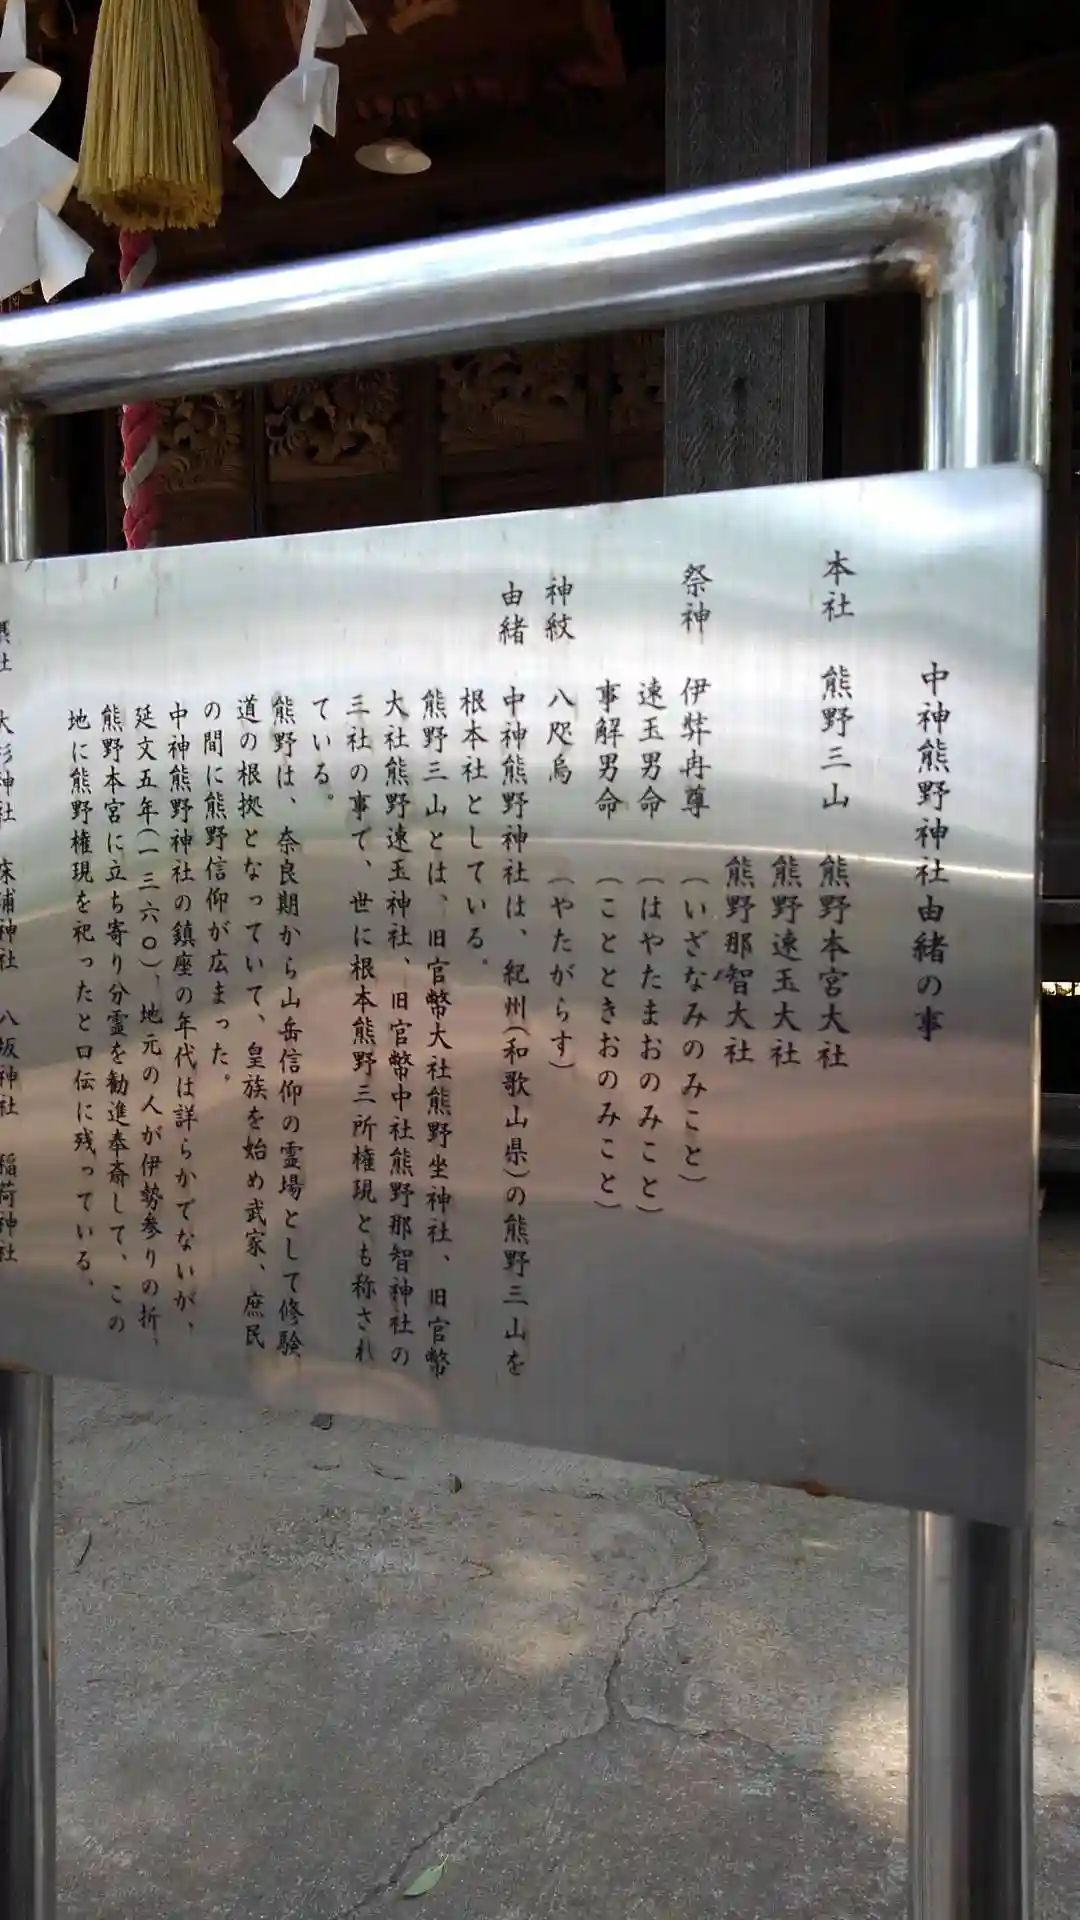 中神熊野神社由緒の事
本社 熊野三山 熊野本宮大社
熊野速玉大社
熊野那智大社
祭神 伊弉冉尊 (いざなみのみこと)
速玉男命 (はやたまおのみこと)
事解男命 (ことときおのみこと)
神紋 八咫烏 (やたがらす)
由緒 中神熊野神社は、紀州(和歌山県)の熊野三山を
根本社としている。
熊野三山とは、旧官幣大社熊野坐神社、旧官幣
大社熊野速玉神社、旧官幣中社熊野那智神社の
三社の事で、世に根本熊野三所権現とも称され
ている。
熊野は、奈良期から山岳信仰の霊場として修験
道の根拠となっていて、皇族を始め武家、庶民
の間に熊野信仰が広まった。
中神熊野神社の鎮座の年代は詳らかでないが、
延文五年(一三六〇)、地元の人が伊勢参りの折、
熊野本宮に立ち寄り分霊を勧進奉斎して、この
地に熊野権現を祀ったと口伝に残っている、
社 大杉神社 床浦神社 八坂神社 稲荷神社